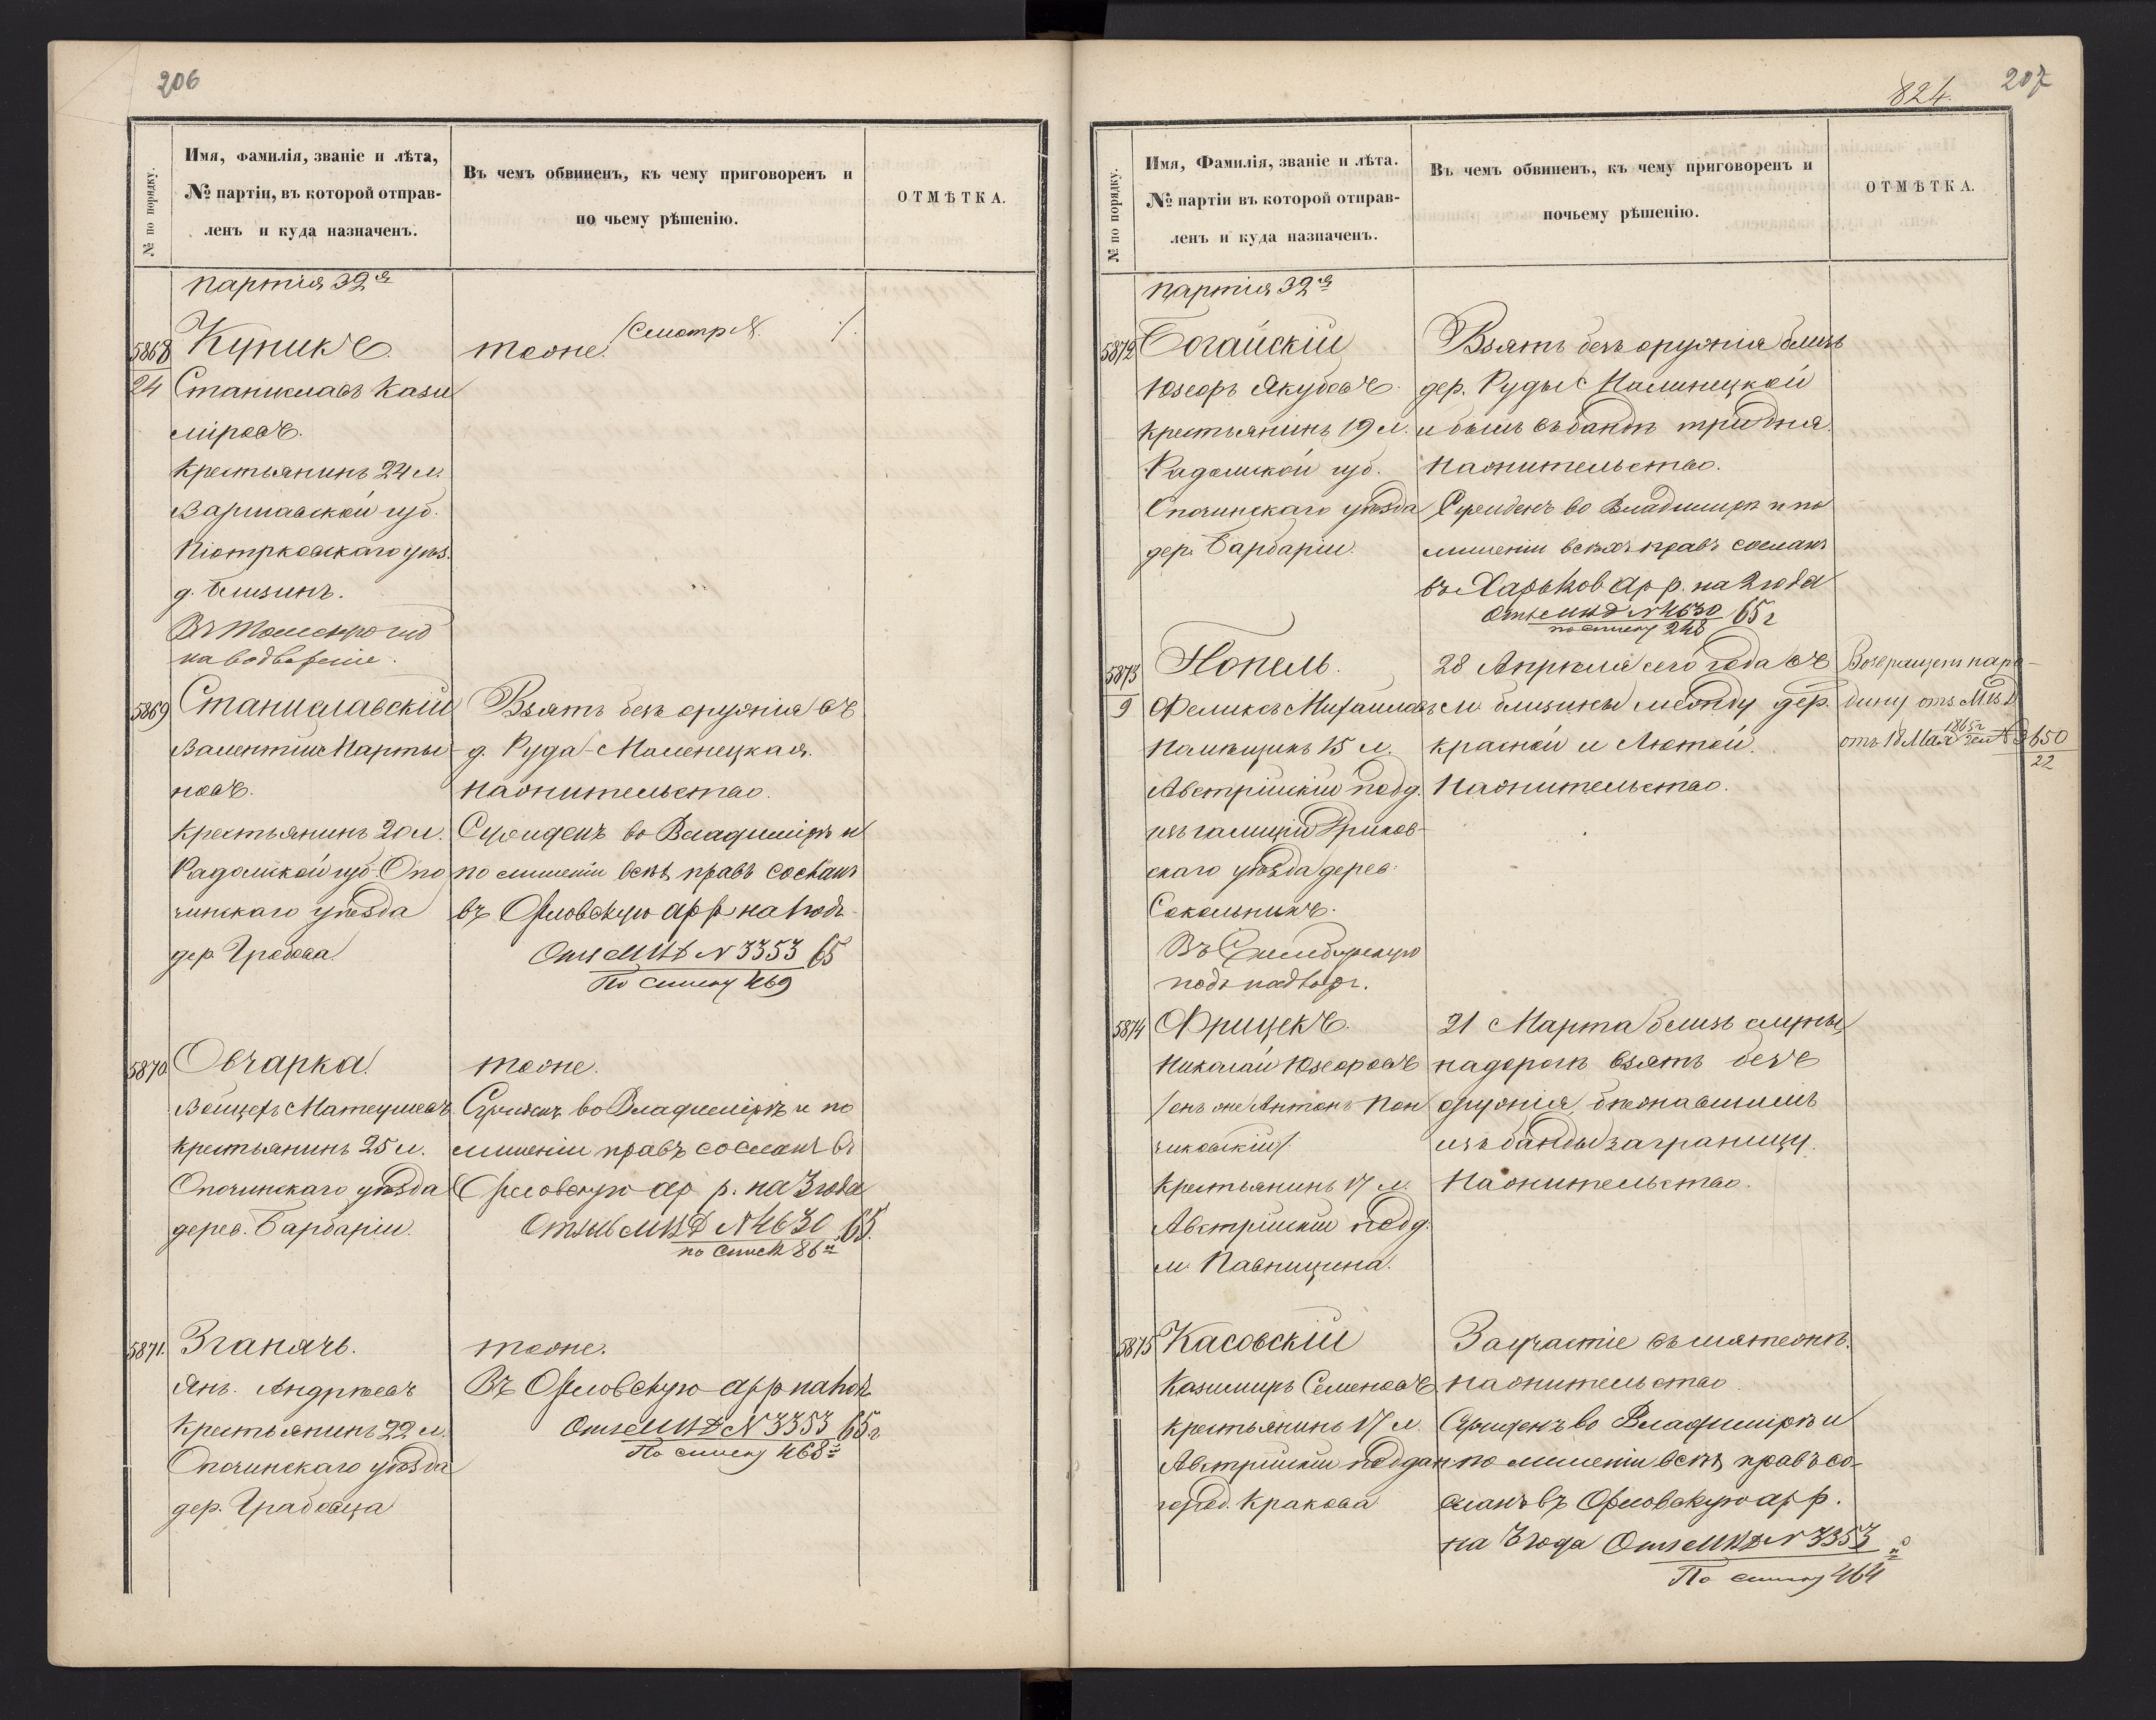 206
№ по порядку.
Имя, фамилія, званіе и лѣта,
№ партіи, въ которой отправ-
ленъ и куда назначенъ.
Въ чемъ обвиненъ, къ чему приговоренъ и
по чьему рѣшенію.
ОТМѢТКА.
Партія 32я
5868
24
Куликъ
Станиславъ Кази
міровъ.
Крестьянинъ 24 л.
Варшавской губ.
Піотрковскаго уѣз.
д. Близинъ.
Въ Томскую губ
на водвореніе.
тоже.
5869
Станиславскій
Валентій Марты-
новъ.
Крестьянинъ 20 л.
Радомской губ. Опо
чинскаго уѣзда
дер. Грабова
Взятъ безъ оружія въ
д. Руда-Маленецкая.
На жительство.
Сужденъ во Владиміръ и
по лишеніи всѣхъ правъ сосланъ
въ Орловскую ар р на 1 годъ
Отн МВД N 3353 65
По списку 469
5870
Овчарка.
Войцехъ Матеушевъ
Крестьянинъ 25 л.
Опочинскаго уѣзда
дерев. Барбаріи.
тоже.
Сужденъ во Владиміръ и по
лишеніи правъ сосланъ въ
Орловскую ар р. на 3 года
МВД N 4630 65.
по списк 86
5871.
Зганячъ.
Янъ Андреевъ
Крестьянинъ 22 л.
Опочинскаго уѣзда
дер. Грабовца
тоже.
Въ Орловскую ар р на 1 год
Отн МВД N 3353 65 г
По списку 468
207
824.
№ по порядку.
Имя, Фамилія, званіе и лѣта.
№ партіи въ которой отправ-
ленъ и куда назначенъ.
Въ чемъ обвиненъ, къ чему приговоренъ и
почьему рѣшенію.
ОТМѢТКА.
Партія 32я
5872
Богайскій
Юзефъ Якубовъ
Крестьянинъ 19 л.
Радомской губ.
Опочинскаго уѣзда
дер. Барбаріи.
Взятъ безъ оружія близъ
дер. Руды Малинецкой
и былъ въ бандѣ три дня.
На жительство.
Сужденъ во Владиміръ и по
лишеніи всѣхъ правъ сосланъ
въ Харьков ар р. на 2 года
Отн МВД N 4630 65 г
по списку 248
5873
9
Нопель.
Феликсъ Михаиловъ
15 л.
Австрійскій под.
изъ Галиціи
скаго уѣзда дерев.
Сокольникъ.
Въ Симбирскую
подъ надзоръ.
28 Апрѣля сего года въ
м. близины между дер.
красной и Лютой.
На жительство.
Возвращенъ на ро-
дину отн. М.В.Д
отъ 18 Мая 1865 г за N 2650
22
5874
Фрицекъ.
Николай Юзефовъ
/онъ же Антонъ Пон
чиковскій/.
Крестьянинъ 17 л.
Австрійскій под.
м. Павницина.
21 Марта близъ
на дорогѣ взятъ безъ
оружія бѣжавшимъ
изъ банды за границу.
На жительство.
5875
Касовскій
Казимиръ Семеновъ
Крестьянинъ 17 л.
Австрійскій поддан
город. Кракова
За участіе въ мятежѣ.
на жительство
Сужденъ во Владиміръ и
по лишеніи всѣхъ правъ со-
сланъ въ Орловскую ар р.
на 3 года Отн МВД N 3353
По списку 464